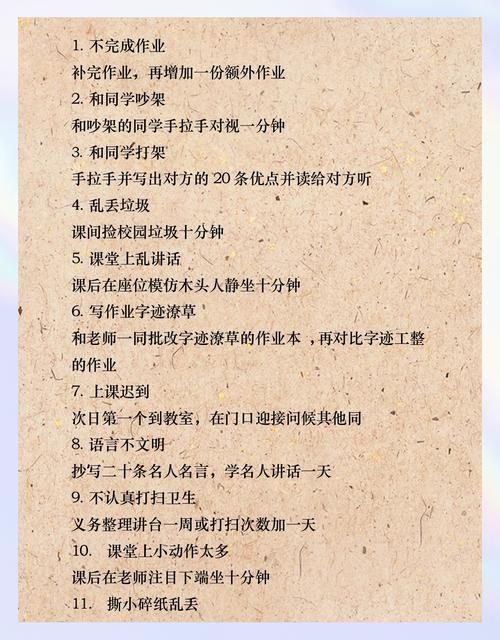 1. 不完成作业
补完作业，再增加一份额外作业
2. 和同学吵架
和吵架的同学手拉手对视一分钟
3. 和同学打架
手拉手并写出对方的 20 条优点并读给对方听
4. 乱丢垃圾
课间捡校园垃圾十分钟
5. 课堂上乱讲话
课后在座位模仿木头人静坐十分钟
6. 写作业字迹潦草
和老师一同批改字迹潦草的作业本 ,再对比字迹工整
的作业
7. 上课迟到
次日第一个到教室，在门口迎接问候其他同
8. 语言不文明
抄写二十条名人名言，学名人讲话一天
9. 不认真打扫卫生
义务整理讲台一周或打扫次数加一天
10. 课堂上小动作太多
课后在老师注目下端坐十分钟
11. 撕小碎纸乱丢